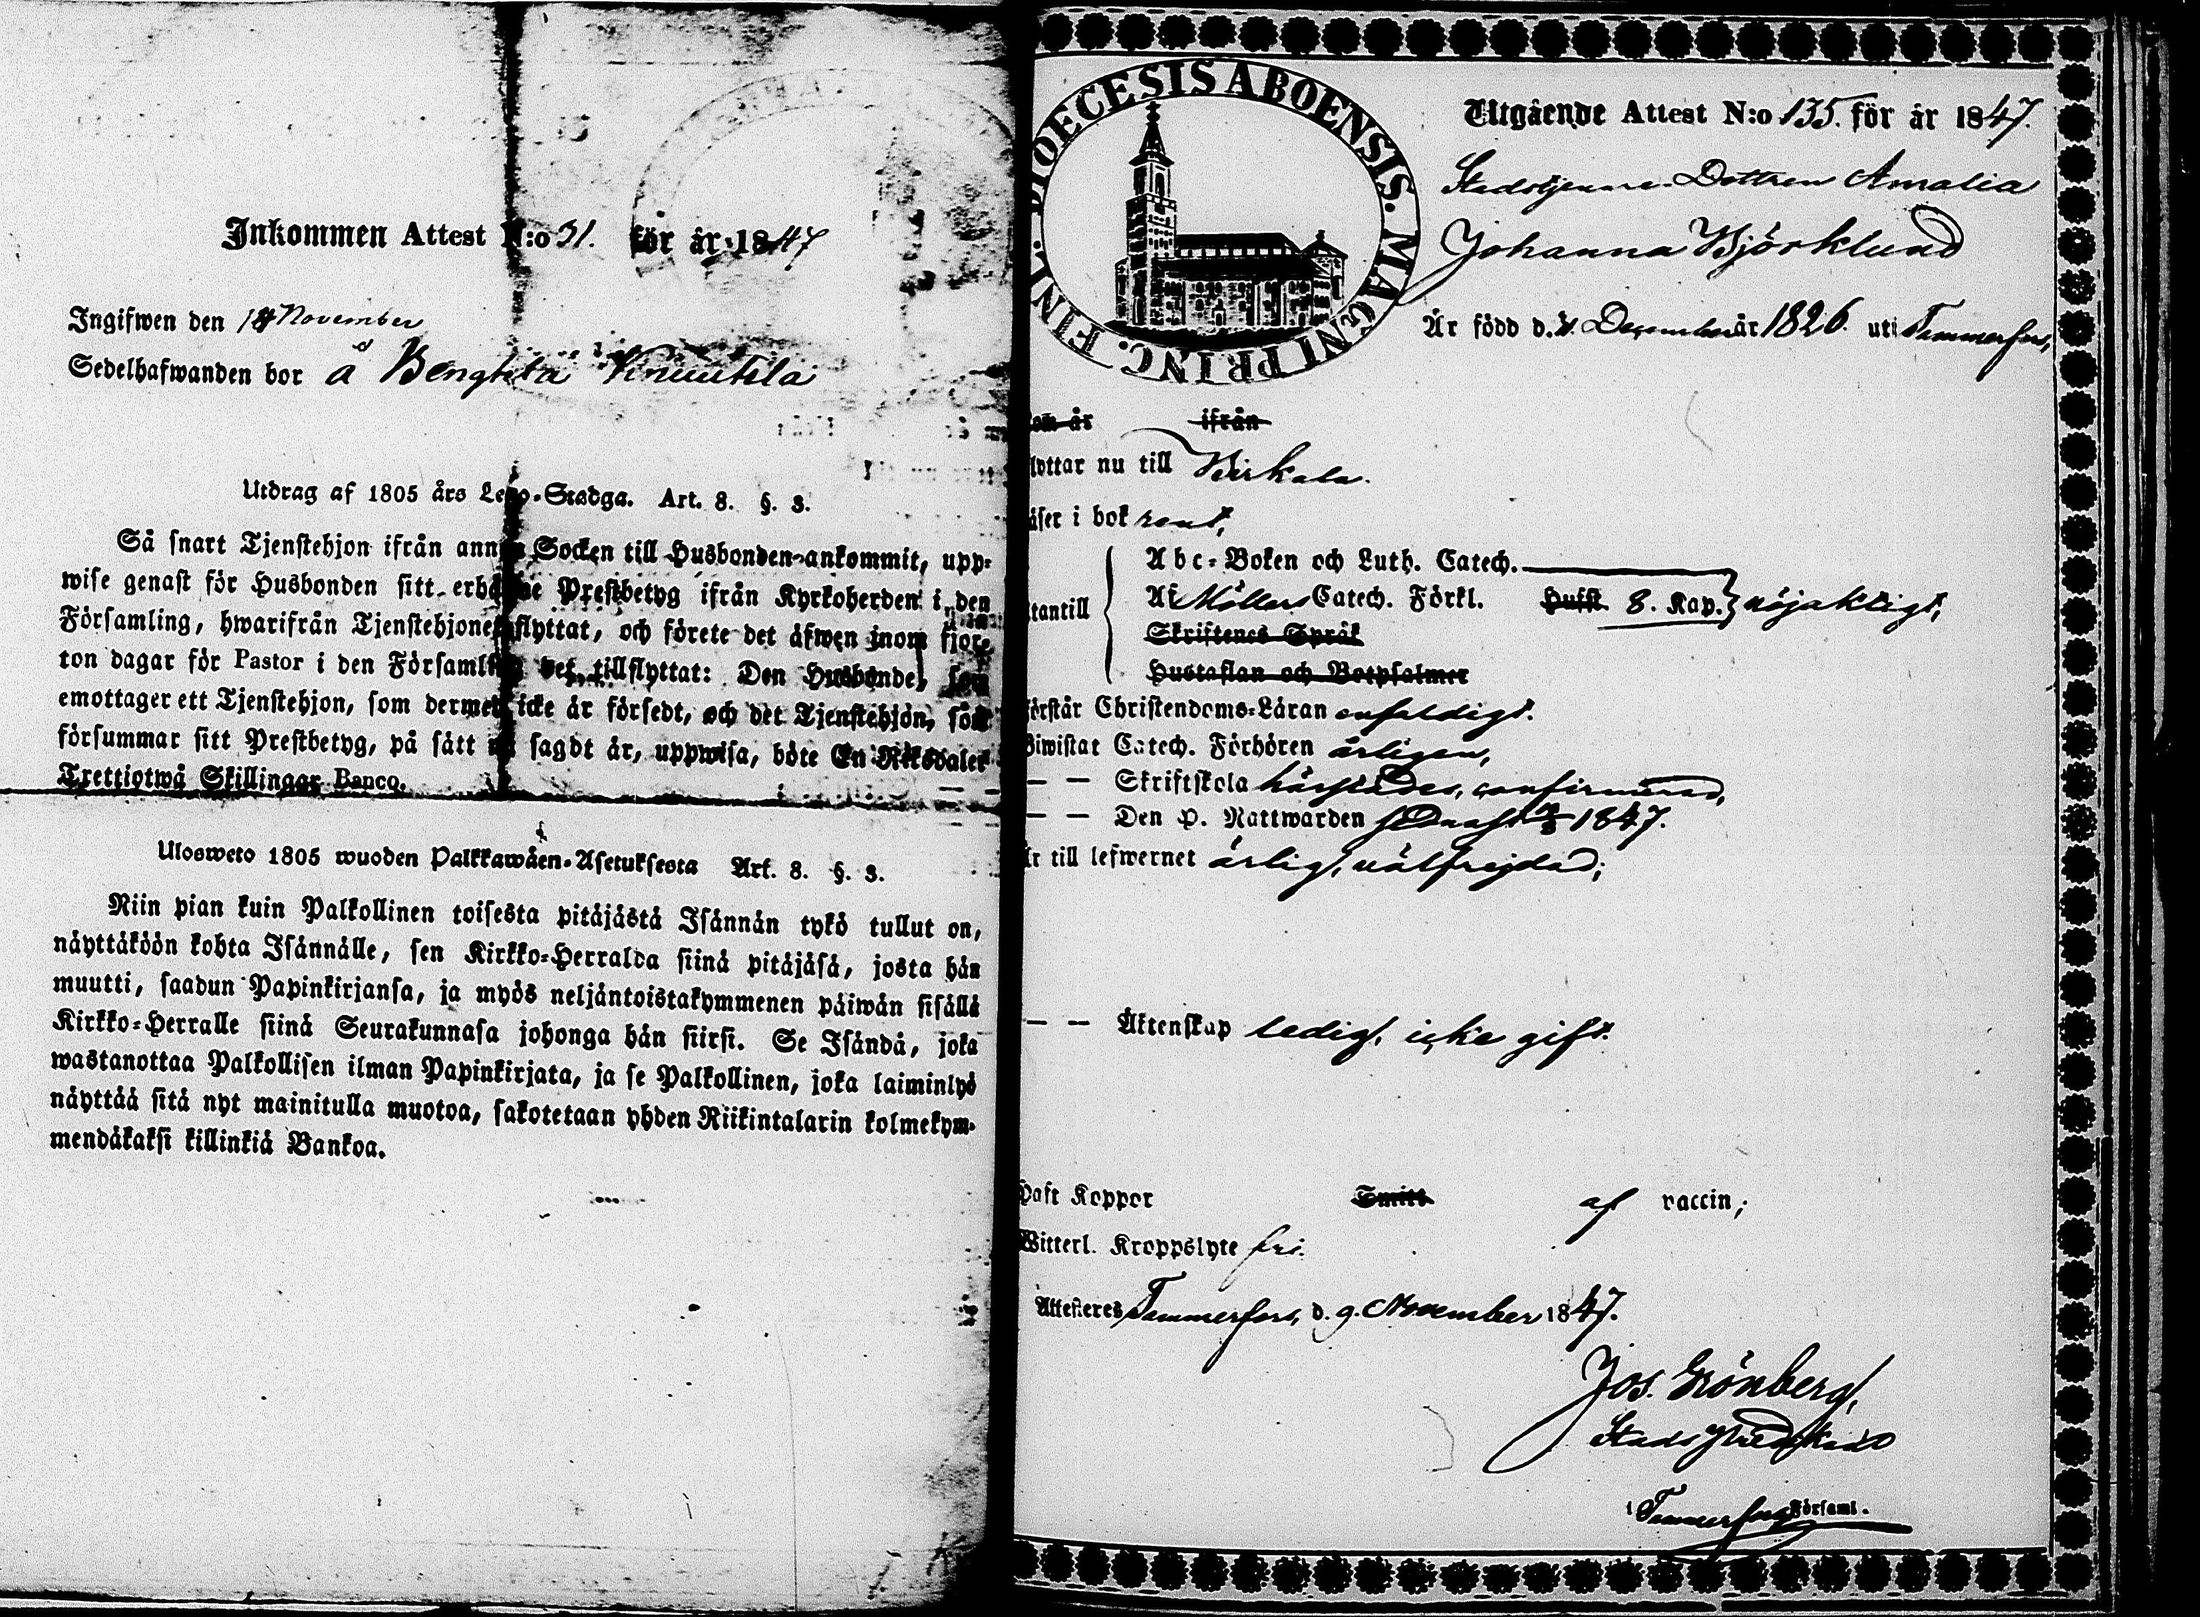 Inkommen Attest N:o 31. för år 1847
Ingifwen den 14 November
Sedelhafwanden bor å Bengtilä Knuutila
Utdrag af 1805 års Lego-Stadga. Art. 8. §. 3.
Så snart Tjenstehjon ifrån annan Socken till Husbonden ankommit, upp-
wise genast för Husbonden sitt erhållne Prestbetyg ifrån Kyrkoherden i den
Församling, hwarifrån Tjenstehjonet flyttat, och förete det äfwen inom fjor-
ton dagar för Pastor i den Församling det tillflyttat: Den Husbonde, som
emottager ett Tjenstehjon, som dermed icke är försedt, och det Tjenstehjon, som
försummar sitt Prestbetyg, på sätt nu sagdt är, uppwisa, böte En Riksdaler
Trettiotwå Skillingar Banco.
Ulosweto 1805 wuoden Palkkawäen-Asetuksesta Art. 8. §. 3.
Niin pian kuin Palkollinen toisesta pitäjästä Isännän tykö tullut on,
näyttäköön kohta Isännälle, sen Kirkko-Herralda siinä pitäjäsä, josta hän
muutti, saadun Papinkirjansa, ja myös neljäntoistakymmenen päiwän sisällä
Kirkko-Herralle siinä Seurakunnasa johonga hän siirsi. Se Isändä, joka
wastanottaa Palkollisen ilman Papinkirjata, ja se Palkollinen, joka laiminlyö
näyttää sitä nyt mainitulla muotoa, sakotetaan yhden Riikintalarin kolmekym-
mendäkaksi killinkiä Bankoa.
FINL. DIOECESIS ABOENSIS. MAGNI PRINC.
Utgående Attest N:o 135. för år 1847.
Stadstjenare Dottren Amalia
Johanna Björklund
Är född d. Decemberår 1826. uti Tammerfors,
kom år ifrån
lyttar nu till Birkala.
äser i bok rent,
Abc-Boken och Luth. Catech.
tantill Af Möllers Catech. Förkl. Hufst. 8. Kap. nöjaktigt,
Skriftenes Språk
Hustaflan och Botpsalmer
örstår Christendoms-Läran enfaldigt.
Biwistat Catech. Förhören årligen,
— — Skriftskola härstädes, confirmerad,
— — Den H. Nattwarden sednast 1847.
Är till lefwernet ärlig, välfrejdad;
— — Äktenskap ledig, icke gift.
Haft Koppor Smitt af vaccin;
Witterl. Kroppslyte fri.
Attesteres Tammerfors, d. 9. November 1847.
Jos. Grönberg,
Stads Predikant
i Tammerfors Församl.